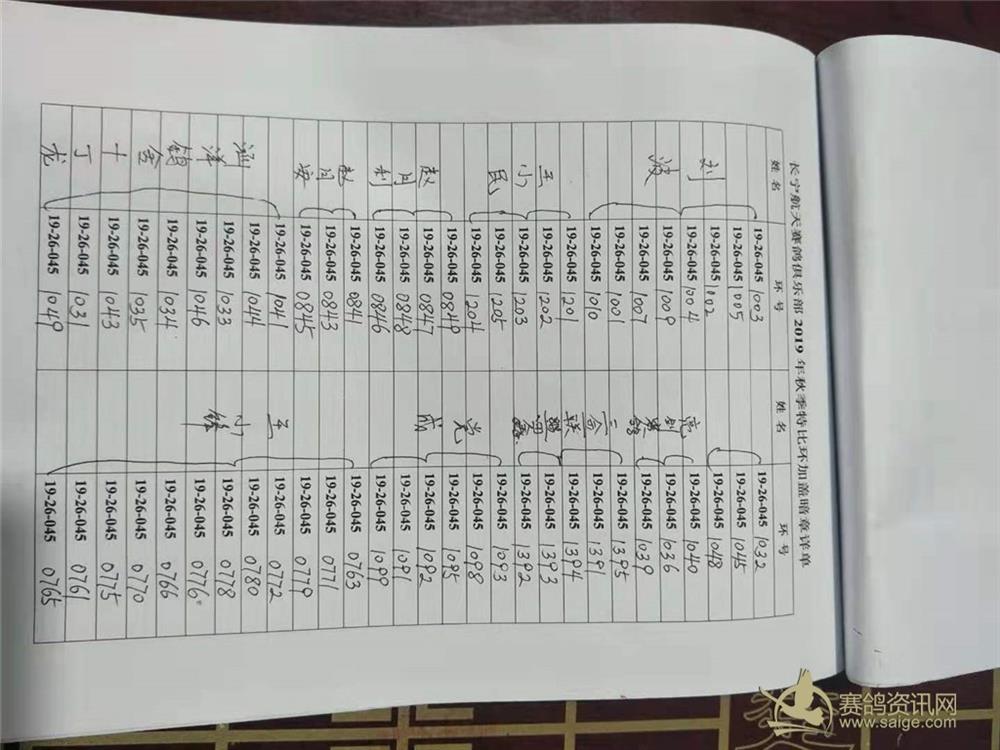 长宁航天赛鸽俱乐部 2019 年秋季特比环加盖暗章详单
姓名 环号 姓名 环号
刘波
19-26-045 1003
19-26-045 1005
19-26-045 1002
19-26-045 1004
19-26-045 1009
19-26-045 1007
19-26-045 1001
19-26-045 1010
王小民
19-26-045 1201
19-26-045 1202
19-26-045 1203
19-26-045 1205
19-26-045 1204
赵月利
19-26-045 0849
19-26-045 0847
19-26-045 0848
19-26-045 0846
赵月安
19-26-045 0841
19-26-045 0843
19-26-045 0845
洋
舍
十
丁
龙
19-26-045 1041
19-26-045 1044
19-26-045 1033
19-26-045 1046
19-26-045 1034
19-26-045 1035
19-26-045 1043
19-26-045 1031
19-26-045 1049
19-26-045 1032
19-26-045 1045
19-26-045 1048
亮
刘
19-26-045 1040
19-26-045 1036
19-26-045 1039
三合联盟
19-26-045 1395
19-26-045 1391
19-26-045 1394
19-26-045 1393
19-26-045 1392
党成
19-26-045 1093
19-26-045 1098
19-26-045 1095
19-26-045 1092
19-26-045 1091
19-26-045 1099
王小锋
19-26-045 0763
19-26-045 0771
19-26-045 0779
19-26-045 0772
19-26-045 0780
19-26-045 0778
19-26-045 0776
19-26-045 0766
19-26-045 0770
19-26-045 0775
19-26-045 0761
19-26-045 0765
赛鸽资讯网
www.saige.com